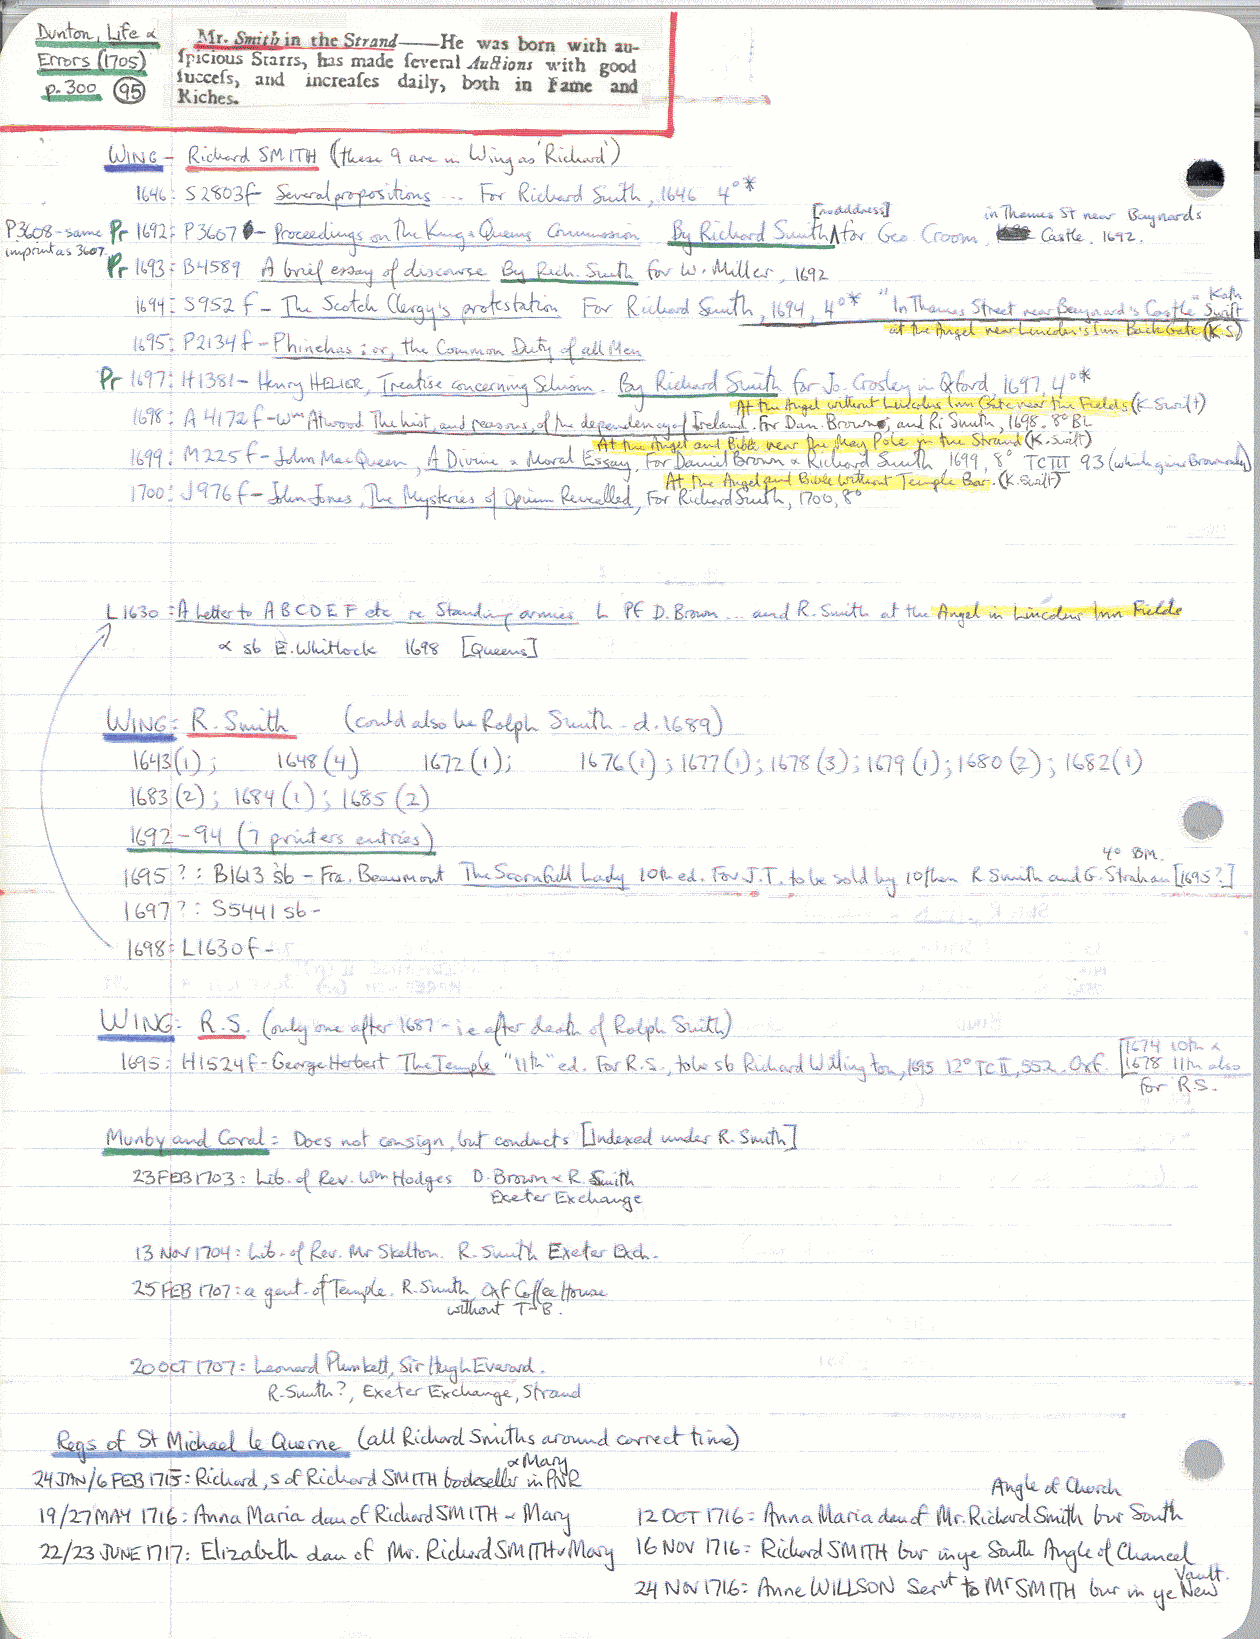 Dunton, Life &
Errors (1705)
p. 300 (95)
Mr. Smith in the Strand——He was born with au-
ſpicious Starrs, has made ſeveral Auctions with good
ſucceſs, and increaſes daily, both in Fame and
Riches.
WING - Richard SMITH (these 9 are in Wing as 'Richard')
1646: S2803f - Several propositions ... For Richard Smith, 1646 4°*
[no address]
in Thames St near Baynards
P3608 - same
imprint as 3607.
Pr 1692: P3607 - Proceedings on the King & Queens Commission By Richard Smith for Geo. Croom, Castle. 1692.
Pr 1693: B4589 A brief essay of discourse By Rich. Smith for W. Miller, 1692
1694: S952 f - The Scotch Clergy's protestation For Richard Smith, 1694, 4°* "In Thames Street near Baynard's Castle" Kath Swift
at the Angel near Lincoln's Inn Back Gate (K.S.)
1695: P2134f - Phinehas: or, the Common Duty of all Men
Pr 1697: H1381 - Henry HELIER, Treatise concerning Schism. By Richard Smith for Jo. Crosley in Oxford, 1697, 4°*
At the Angel without Lincolns Inn Gate near the Fields (K Swift)
1698: A 4172 f - Wm Atwood The hist, and reasons, of the dependency of Ireland. For Dan. Brown, and Ri Smith, 1698. 8° BL
At the Angel and Bible near the May Pole in the Strand (K. Swift)
1699: M225f - John MacQueen, A Divine & Moral Essay. For Daniel Brown & Richard Smith 1699, 8° TC III 93 (which gives Brown only)
At the Angel and Bible without Temple Bar. (K. Swift)
1700: J976f - John Jones, The Mysteries of Opium Revealled, For Richard Smith, 1700, 8°
L1630: A Letter to A B C D E F etc re Standing armies L Pf D. Brown ... and R. Smith at the Angel in Lincolns Inn Fields
& sb E. Whitlock 1698 [Queens]
WING: R. Smith (could also be Ralph Smith - d. 1689)
1643(1); 1648(4) 1672(1); 1676(1); 1677(1); 1678(3); 1679(1); 1680(2); 1682(1)
1683(2); 1684(1); 1685(2)
1692-94 (7 printers entries)
4° BM.
1695?: B1613 sb - Fra. Beaumont The Scornfull Lady 10th ed. For J.T. to be sold by 10 then R Smith and G. Strahan [1695?]
1697?: S5441 sb -
1698: L1630 f -
WING: R.S. (only one after 1687 - i.e after death of Ralph Smith)
1695: H1524f - George Herbert The Temple "11th" ed. For R.S., to be sb Richard Willington, 1695 12° TC II, 552. Oxf. [1674 10th &
1678 11th also
for R.S.
Munby and Coral: Does not consign, but conducts [Indexed under R. Smith]
23 FEB 1703: Lib. of Rev. Wm Hodges D. Brown & R. Smith
Exeter Exchange
13 NOV 1704: Lib. of Rev. Mr Skelton. R. Smith Exeter Exch.
25 FEB 1707: a gent. of Temple. R. Smith, Oxf Coffee House
without T-B.
20 OCT 1707: Leonard Plunkett, Sir Hugh Everard.
R. Smith?, Exeter Exchange, Strand
Regs of St Michael le Querne (all Richard Smiths around correct time)
& Mary
24 JAN/6 FEB 1715: Richard, s of Richard SMITH bookseller in PNR
19/27 MAY 1716: Anna Maria dau of Richard SMITH & Mary
22/23 JUNE 1717: Elizabeth dau of Mr. Richard SMITH & Mary
Angle of Church
12 OCT 1716: Anna Maria dau of Mr. Richard Smith bur South
16 NOV 1716: Richard SMITH bur in ye South Angle of Chancel
24 NOV 1716: Anne WILLSON Servt to Mr SMITH bur in ye New
Vault.